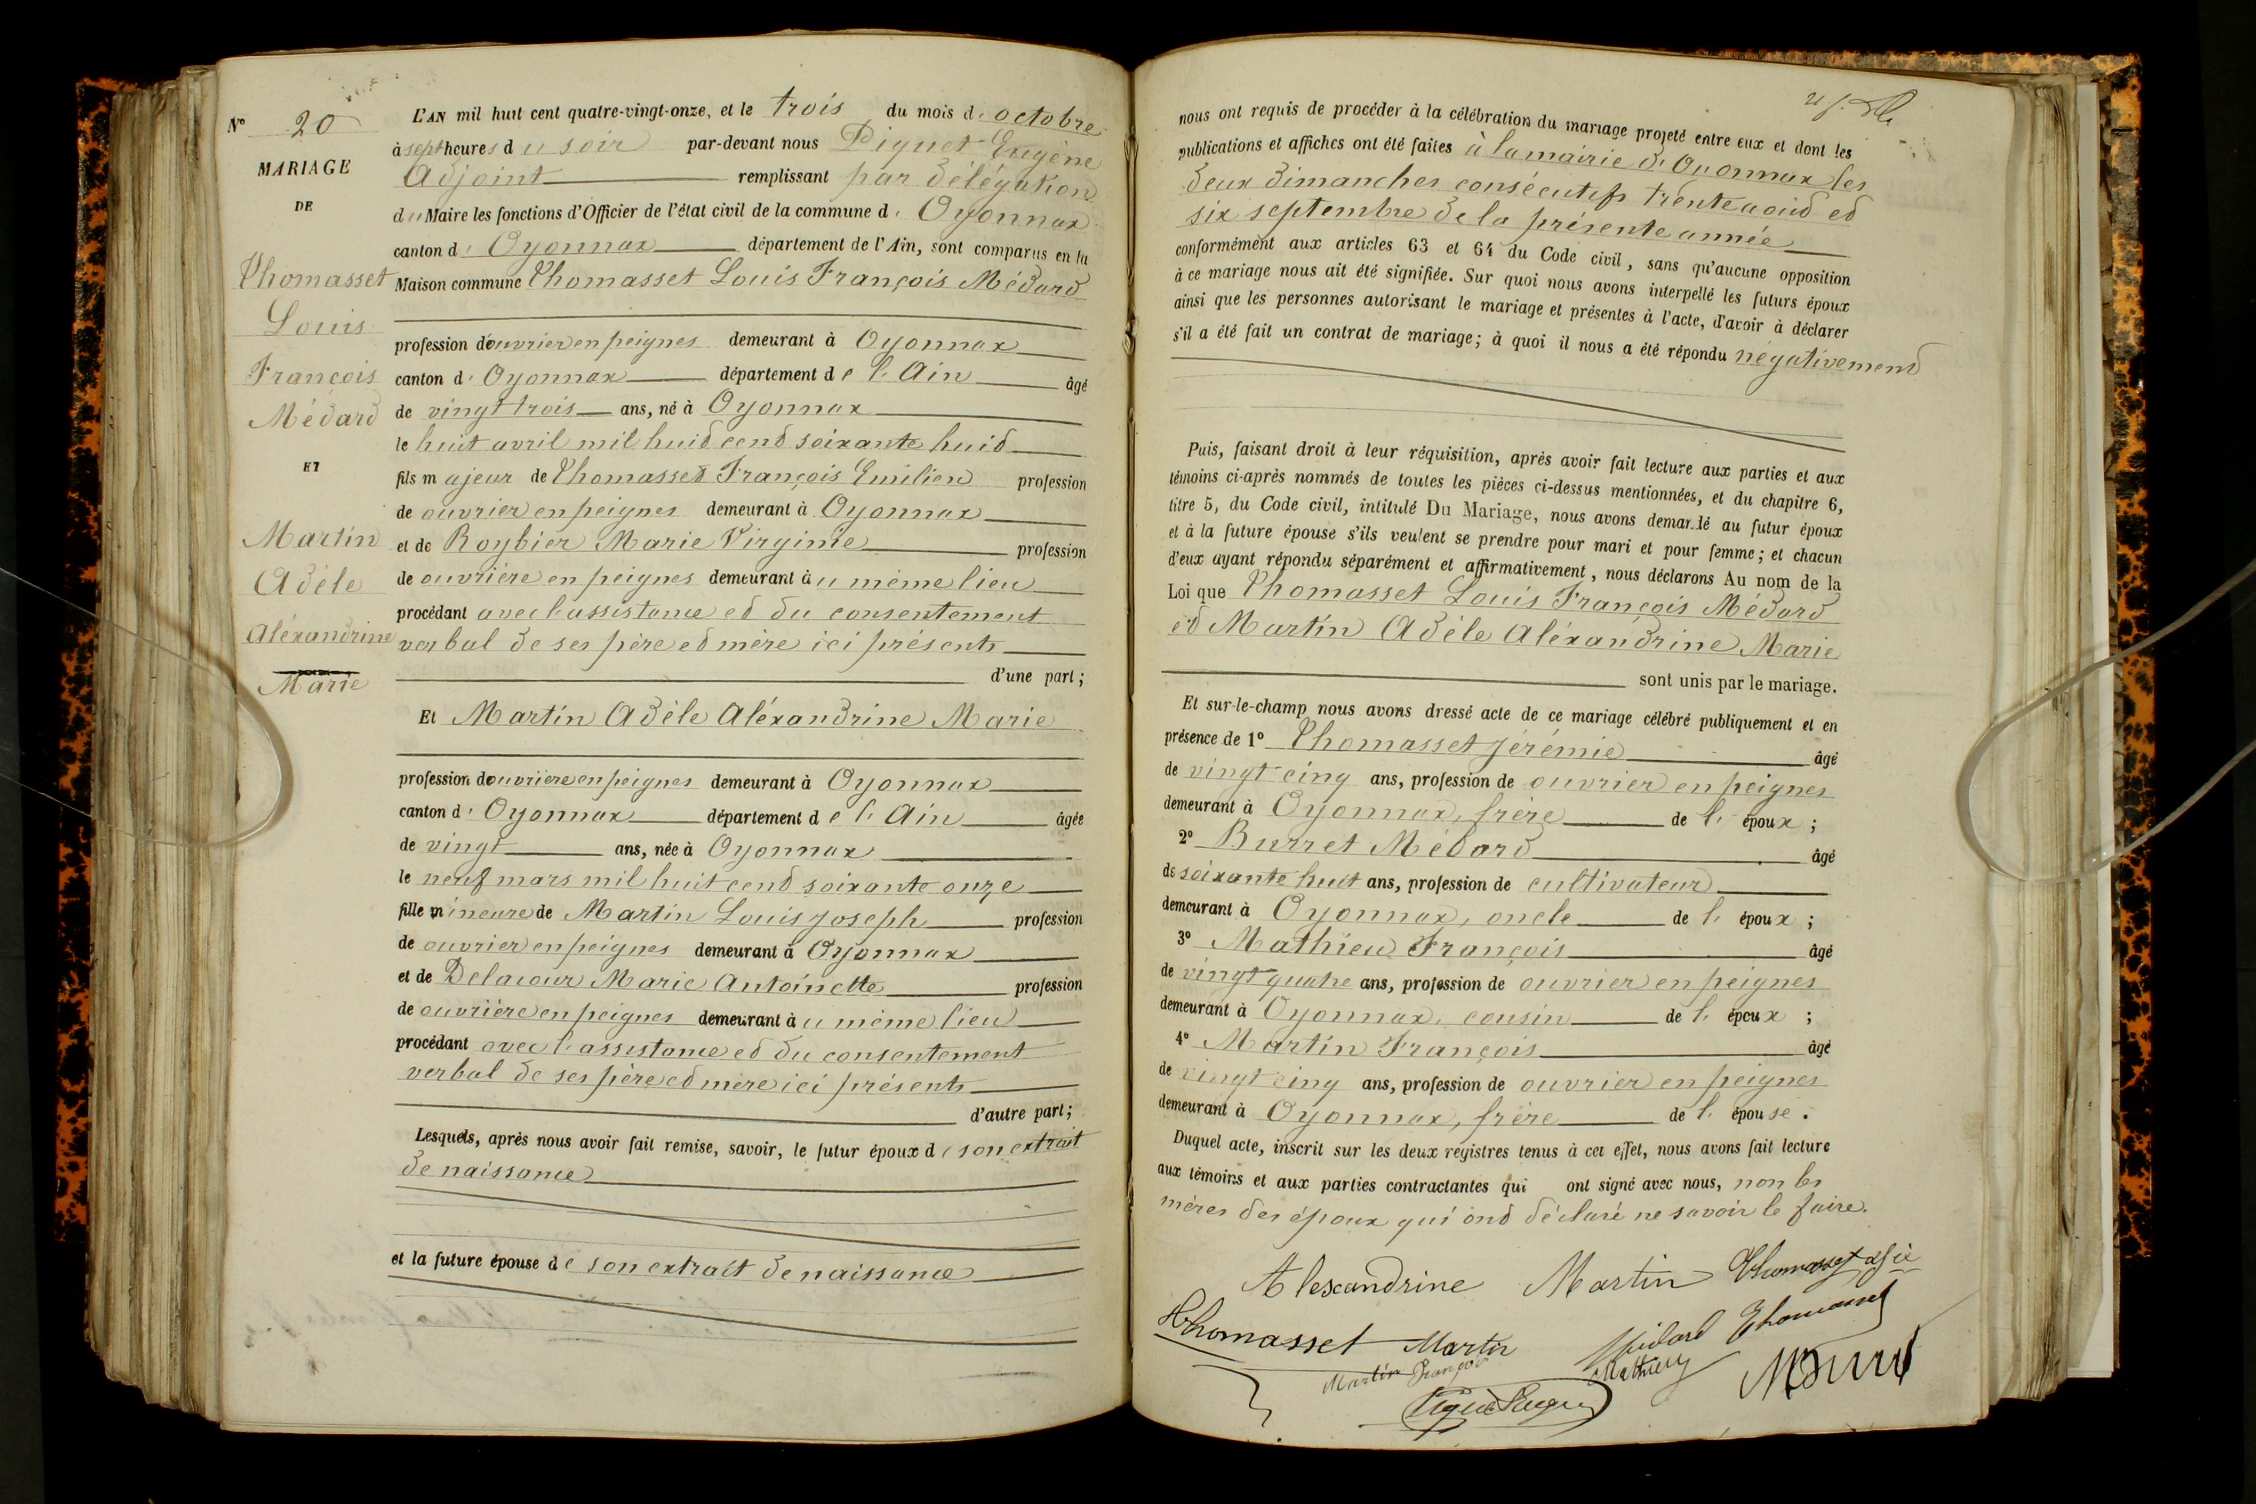 N° 20
MARIAGE
DE
Thomasset
Louis
François
Médard
ET
Martin
Adèle
Aléxandrine
Marie
L'AN mil huit cent quatre-vingt-onze, et le trois du mois d'octobre
à sept heures du soir par-devant nous Piquet Eugène
Adjoint remplissant par délégation
du Maire les fonctions d'Officier de l'état civil de la commune d' Oyonnax
canton d' Oyonnax département de l'Ain, sont comparus en la
Maison commune Thomasset Louis François Médard
profession d'ouvrier en peignes demeurant à Oyonnax
canton d' Oyonnax département de l'Ain âgé
de vingt trois ans, né à Oyonnax
le huit avril mil huit cent soixante huit
fils majeur de Thomasset François Emilien profession
de ouvrier en peignes demeurant à Oyonnax
et de Roybier Marie Virginie profession
de ouvrière en peignes demeurant au même lieu
procédant avec l'assistance et du consentement
verbal de ses père et mère ici présents
d'une part;
Et Martin Adèle Aléxandrine Marie
profession d'ouvrière en peignes demeurant à Oyonnax
canton d' Oyonnax département de l'Ain âgée
de vingt ans, née à Oyonnax
le neuf mars mil huit cent soixante onze
fille mineure de Martin Louis Joseph profession
de ouvrier en peignes demeurant à Oyonnax
et de Delacour Marie Antoinette profession
de ouvrière en peignes demeurant au même lieu
procédant avec l'assistance et du consentement
verbal de ses père et mère ici présents
d'autre part;
Lesquels, après nous avoir fait remise, savoir, le futur époux de son extrait
de naissance
et la future épouse de son extrait de naissance
nous ont requis de procéder à la célébration du mariage projeté entre eux et dont les
publications et affiches ont été faites à la mairie d'Oyonnax les
deux dimanches consécutifs trente août et
six septembre de la présente année
conformément aux articles 63 et 64 du Code civil, sans qu'aucune opposition
à ce mariage nous ait été signifiée. Sur quoi nous avons interpellé les futurs époux
ainsi que les personnes autorisant le mariage et présentes à l'acte, d'avoir à déclarer
s'il a été fait un contrat de mariage; à quoi il nous a été répondu négativement
Puis, faisant droit à leur réquisition, après avoir fait lecture aux parties et aux
témoins ci-après nommés de toutes les pièces ci-dessus mentionnées, et du chapitre 6,
titre 5, du Code civil, intitulé Du Mariage, nous avons demandé au futur époux
et à la future épouse s'ils veulent se prendre pour mari et pour femme; et chacun
d'eux ayant répondu séparément et affirmativement, nous déclarons Au nom de la
Loi que Thomasset Louis François Médard
et Martin Adèle Aléxandrine Marie
sont unis par le mariage.
Et sur-le-champ nous avons dressé acte de ce mariage célébré publiquement et en
présence de 1° Thomasset Jérémie âgé
de vingt cinq ans, profession de ouvrier en peignes
demeurant à Oyonnax, frère de l'époux;
2° Burret Médard âgé
de soixante huit ans, profession de cultivateur
demeurant à Oyonnax, oncle de l'époux;
3° Mathieu François âgé
de vingt quatre ans, profession de ouvrier en peignes
demeurant à Oyonnax, cousin de l'époux;
4° Martin François âgé
de vingt cinq ans, profession de ouvrier en peignes
demeurant à Oyonnax, frère de l'épouse.
Duquel acte, inscrit sur les deux registres tenus à cet effet, nous avons fait lecture
aux témoins et aux parties contractantes qui ont signé avec nous, non les
mères des époux qui ont déclaré ne savoir le faire.
Alexandrine Martin Thomasset
Thomasset Martin Médard Thomasset
Martin François Mathieu
Piquet Eugène